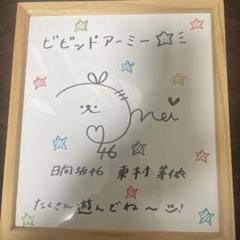 ビビッドアーミー
mei
46
日向坂46 東村芽依
たくさん遊んでね〜